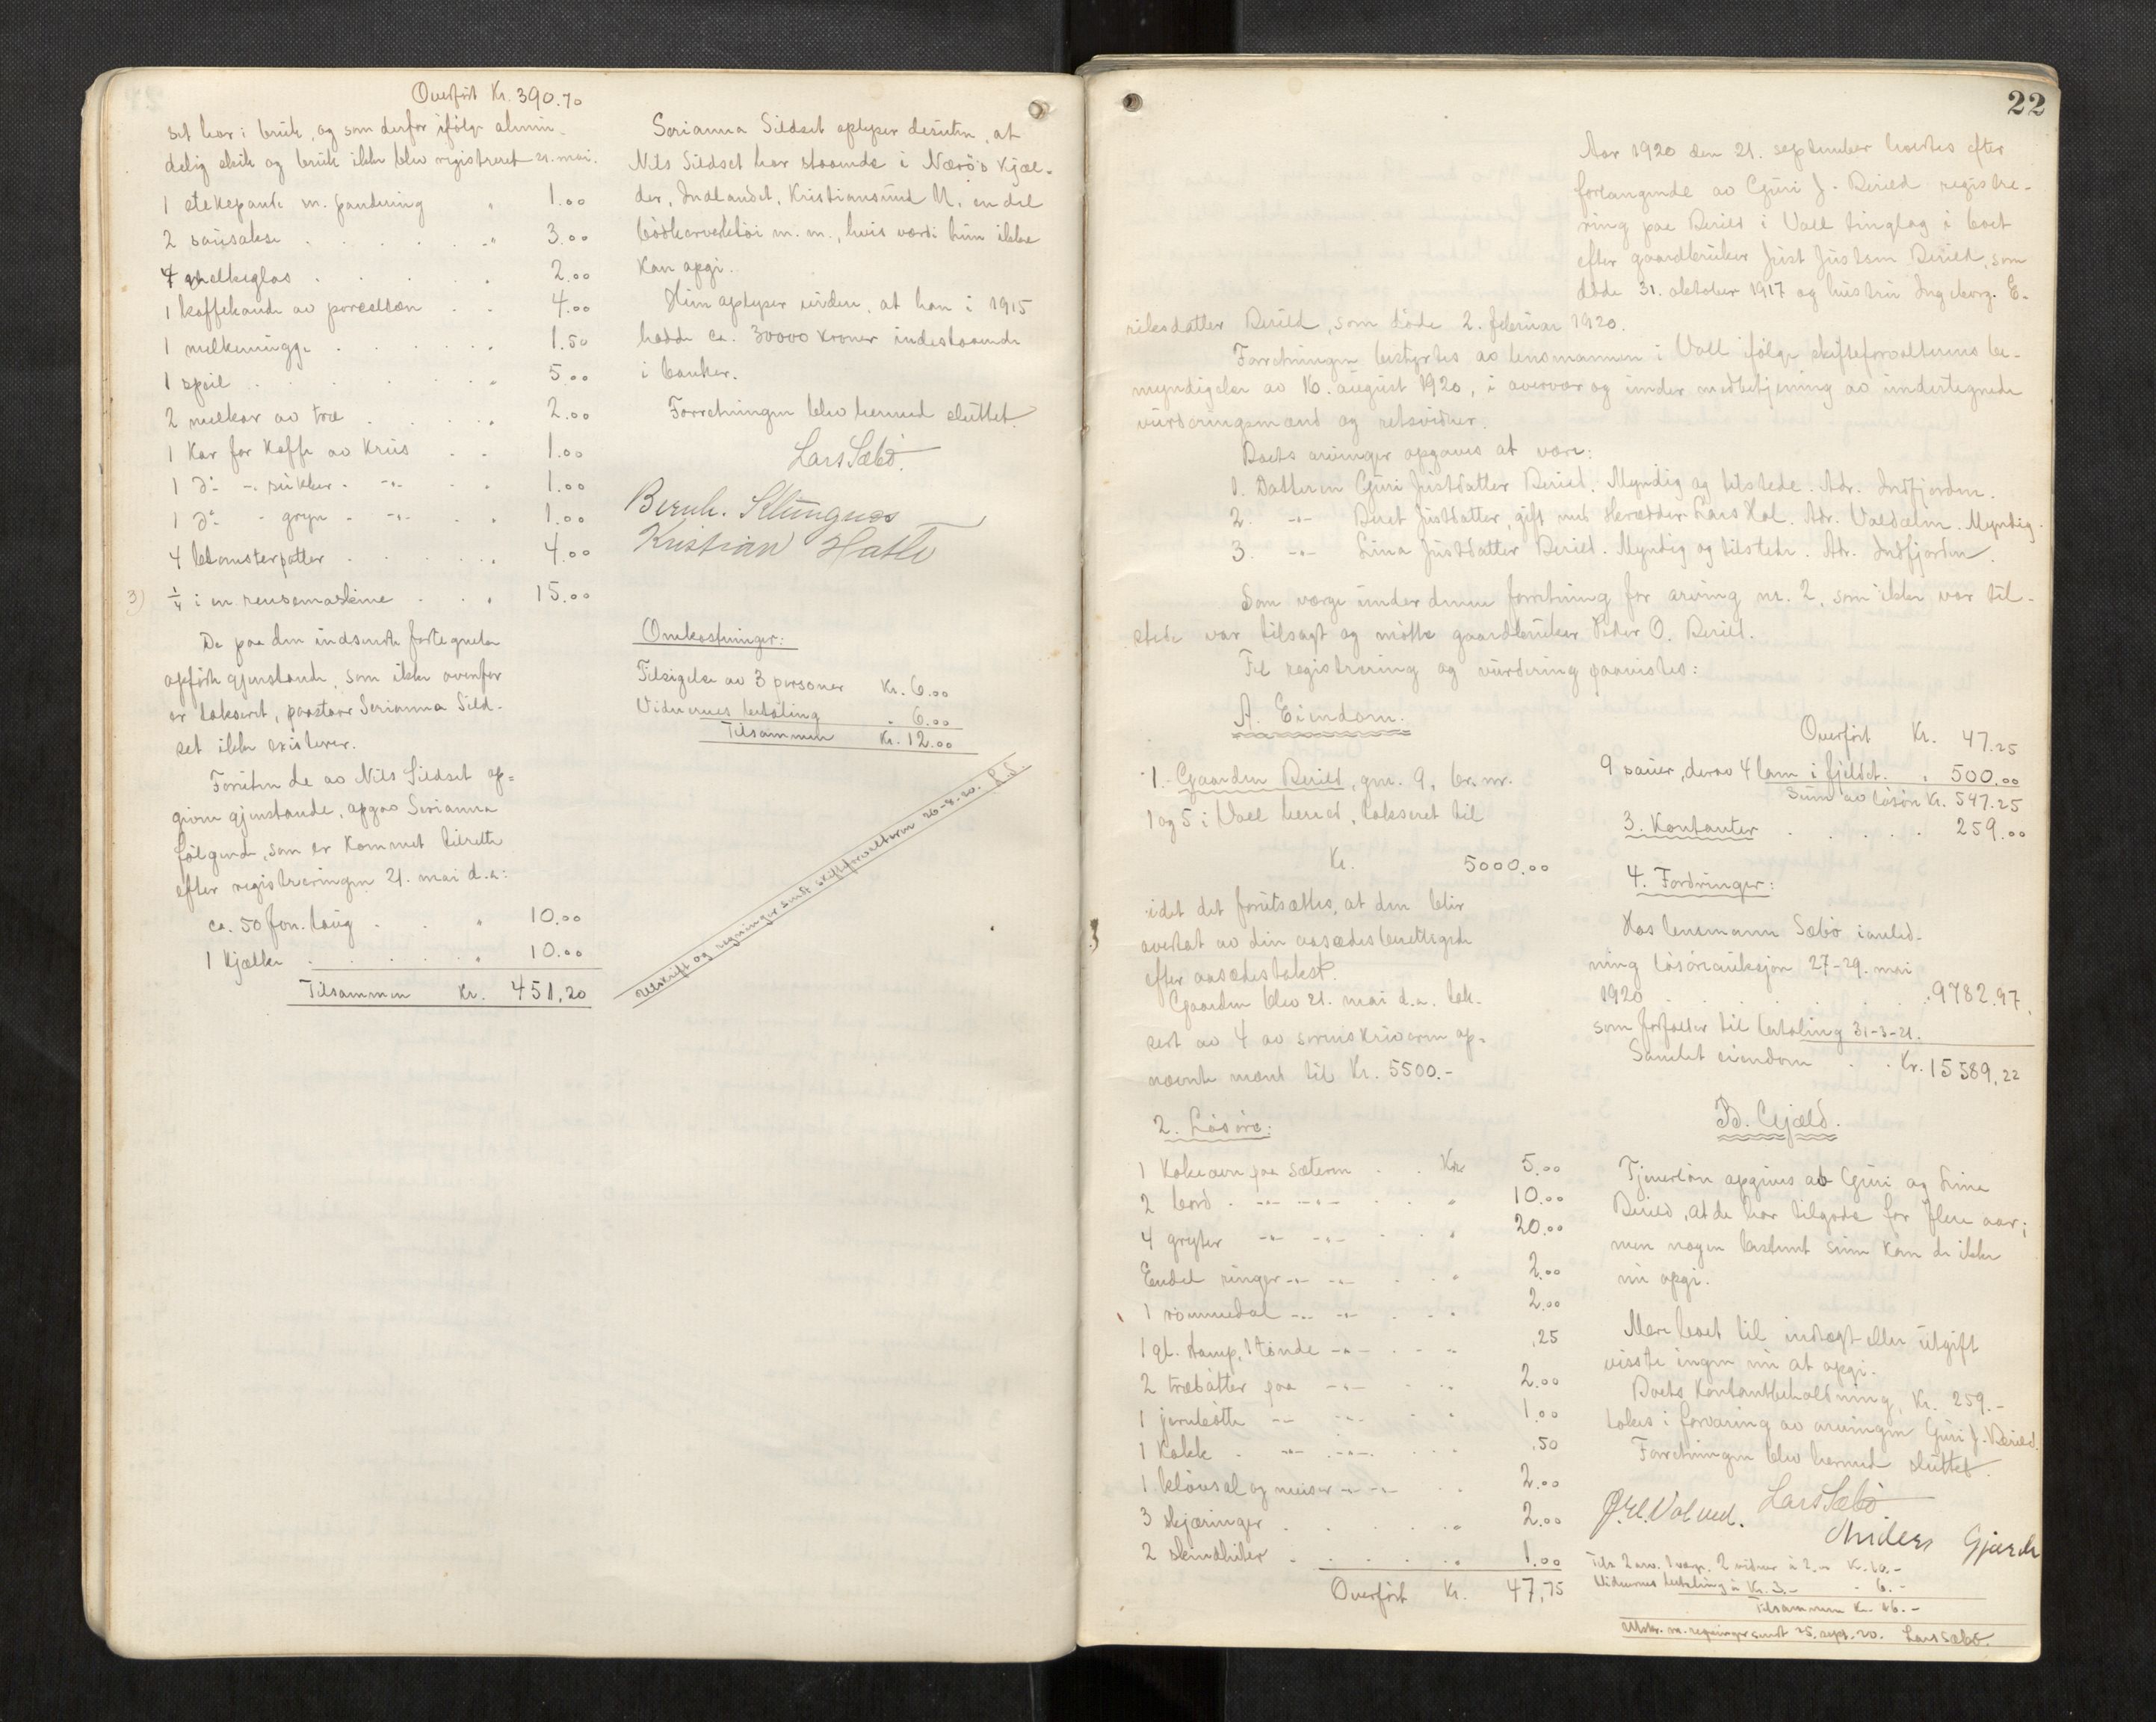 Overført Kr. 390.70
set har i bruk, og som derfor ifølge almin-
delig skik og bruk ikke blev registreret 21. mai.
1 stekepande m. pandering " 1.00
2 sausakse . . . . . " 3.00
4 melkeglas . . . . 2.00
1 kaffekande av porcellæn . . 4.00
1 melkemugge . . . . . 1.50
1 speil . . . . . " 5.00
2 melkar av træ . . . . 2.00
1 Kar for Kaffe av Krus . . 1.00
1 do - sukker - -"- . . 1.00
1 do - gryn - -"- . . 1.00
4 blomsterpotter . . . . . 4.00
3) 1/4 i en rensemaskine . . . 15.00
De paa den indsendte fortegnelse
opførte gjenstande, som ikke ovenfor
er takseret, paastaar Serianna Sild-
set ikke existerer.
Foruten de av Nils Sildset op-
givne gjenstande, opgav Serianna
følgende, som er kommet tilrette
efter registreringen 21. mai d.a:
ca. 50 fon. laug . . " 10.00
1 kjælke . . . . . " 10.00
Tilsammen Kr. 451,20
Serianna Sildset oplyser desuten, at
Nils Sildset har staaende i Nærø's Kjæl-
der, Indlandet, Kristiansund N, en del
bødkerverktøi m.m., hvis værdi hun ikke
kan opgi.
Hun oplyser videre, at han i 1915
hadde ca. 30000 kroner indestaaende
i banker.
Forretningen blev hermed sluttet.
Lars Sæbø.
Bernh. Klungnes
Kristian Hatle
Omkostninger:
Tilsigelse av 3 personer Kr. 6.00
Vidnernes betaling " 6.00
Tilsammen Kr. 12.00
Utskrift og regninger sendt skifteforvalteren 26-8-20. L.S.
22
Aar 1920 den 21. september holdtes efter
forlangende av Guri J. Berild registre-
ring paa Berild i Voll tinglag i boet
efter gaardbruker Just Justsen Berild, som
døde 31. oktober 1917 og hustru Ingeborg E-
riksdatter Berild, som døde 2. februar 1920.
Forretningen bestyrtes av lensmannen i Voll ifølge skifteforvalterens be-
myndigelse av 16. august 1920, i overvær og under medbetjening av undertegnede
vurderingsmænd og retsvidner.
Boets arvinger opgaves at være:
1. Datteren Guri Justdatter Berild. Myndig og tilstede. Adr. Indfjorden.
2. -"- Beret Justdatter, gift med Lars Hol. Adr. Valdalen. Myndig.
3. -"- Lina Justdatter Berild. Myndig og tilstede. Adr. Indfjorden.
Som værge under denne forretning for arving nr. 2, som ikke var til-
stede var tilsagt og møtte gaardbruker Peder O. Berild.
Til registrering og vurdering paavistes:
A. Eiendom.
1. Gaarden Berild, gnr. 9, br. nr.
1 og 5 i Voll herred, takseret til
Kr. 5000.00
idet det forutsættes, at den blir
overtat av den aasædesberettigede
efter aasædestakst.
Gaarden blev 21. mai d.a. tak-
sert av 4 av sorenskriveren op-
nævnte mænd til Kr. 5500.-
2. Løsøre:
1 Kokeovn paa sæteren . . Kr. 5.00
2 bord . -"- -"- . . " 10.00
4 gryter -"- -"- . . " 20.00
Endel ringer -"- -"- . . " 2.00
1 rømmedal -"- -"- . . 2.00
1 gl. stamp, 1 tønde -"- . . " .25
2 træbøtter paa -"- . . " 2.00
1 jernbøtte -"- -"- . . 1.00
1 Kakk . -"- -"- . . .50
1 kløvsal og meiser -"- -"- . . 2.00
3 skjæringer . . . . . " 2.00
2 skindhiter . . . . . " 1.00
Overført Kr. 47,75
Overført Kr. 47.25
9 sauer, derav 4 lam i fjeldet. " 500.00
Sum av løsøre Kr. 547.25
3. Kontanter . . . . . 259.00
4. Fordringer:
Hos lensmann Sæbø i anled-
ning løsøreauksjon 27-29. mai
1920 . . . . . . . 9782.97,
som forfalder til betaling 31-3-21.
Samlet eiendom . . Kr. 15589,22
B. Gjæld.
Tjenerløn opgives av Guri og Lina
Berild, at de har tilgode for flere aar;
men nogen bestemt sum kan de ikke
nu opgi.
Mere boet til indtægt eller utgift
visste ingen nu at opgi.
Boets Kontantbeholdning, Kr. 259.-
tokes i forvaring av arvingen Guri J. Berild.
Forretningen blev hermed sluttet.
Lars Sæbø
Anders Gjerde
Tils. 2 arv. 1 værge, 2 vidner à 2.00 Kr. 10.-
Vidnernes betaling à Kr. 3.- - 6.-
Tilsammen Kr. 16.-
Utskr. m. regninger sendt 25. sept. 20. Lars Sæbø.